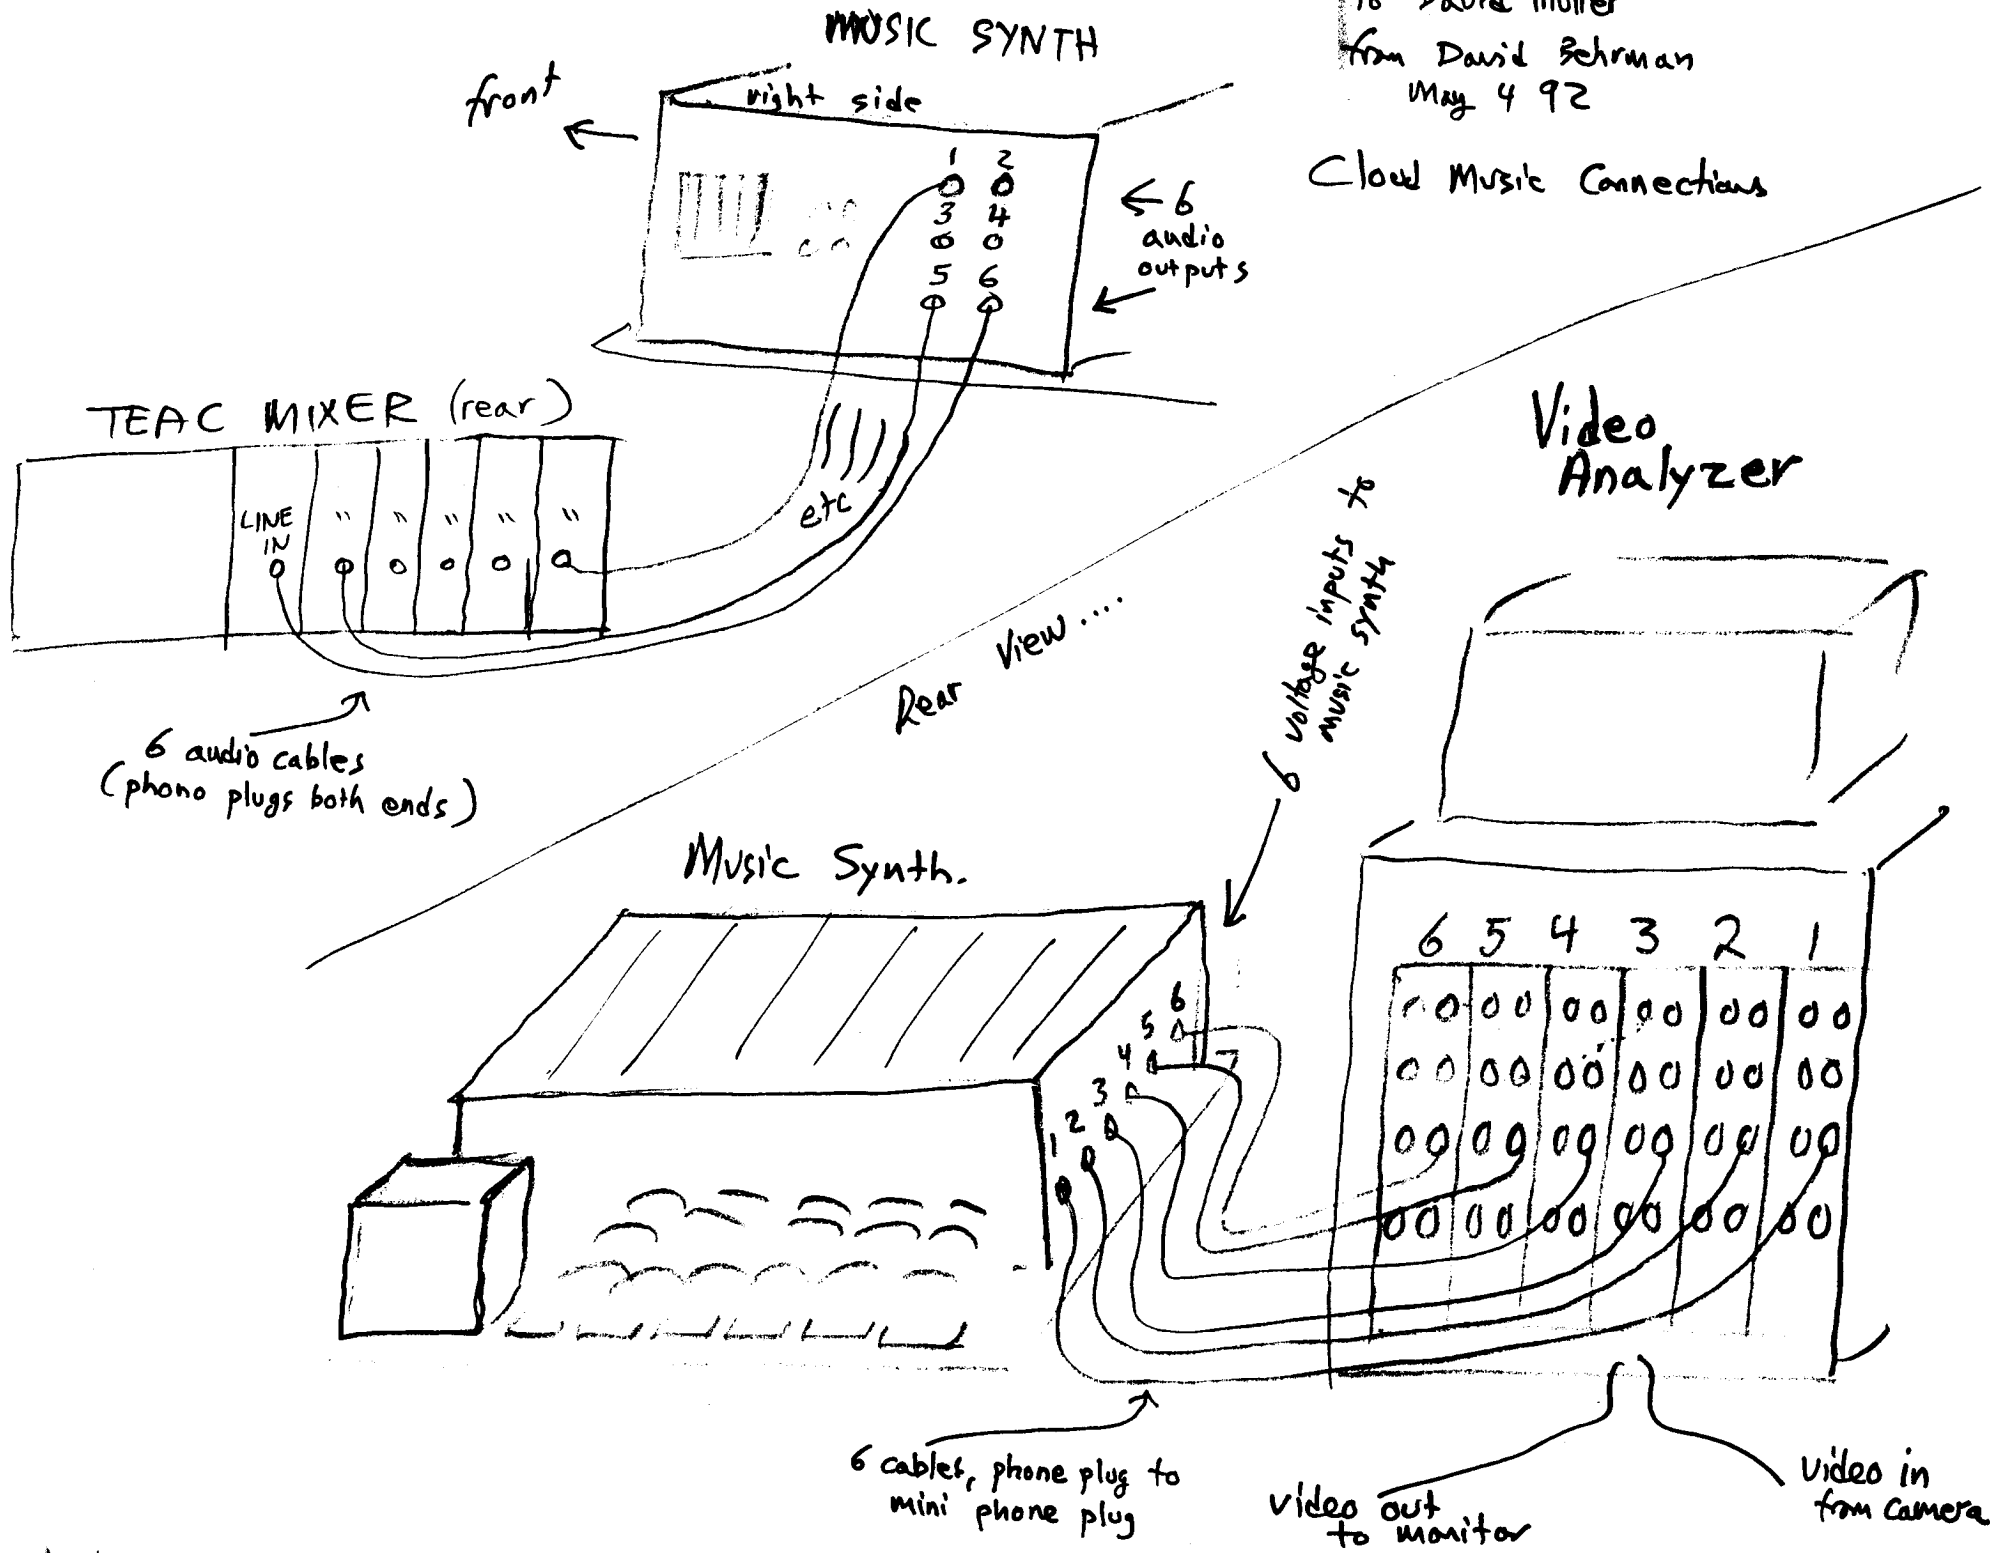 to David Muller
from David Behrman
May 4 92
Cloud Music Connections
MUSIC SYNTH
front
right side
1 2
3 4
5 6
6
audio
outputs
TEAC MIXER (rear)
LINE
IN
" " " " "
etc
6 audio cables
(phono plugs both ends)
Rear View ....
Video
Analyzer
6 voltage inputs to
music synth
Music Synth.
6
5
4
3
2
1
6 5 4 3 2 1
6 cables, phone plug to
mini phone plug
video out
to monitor
video in
from camera